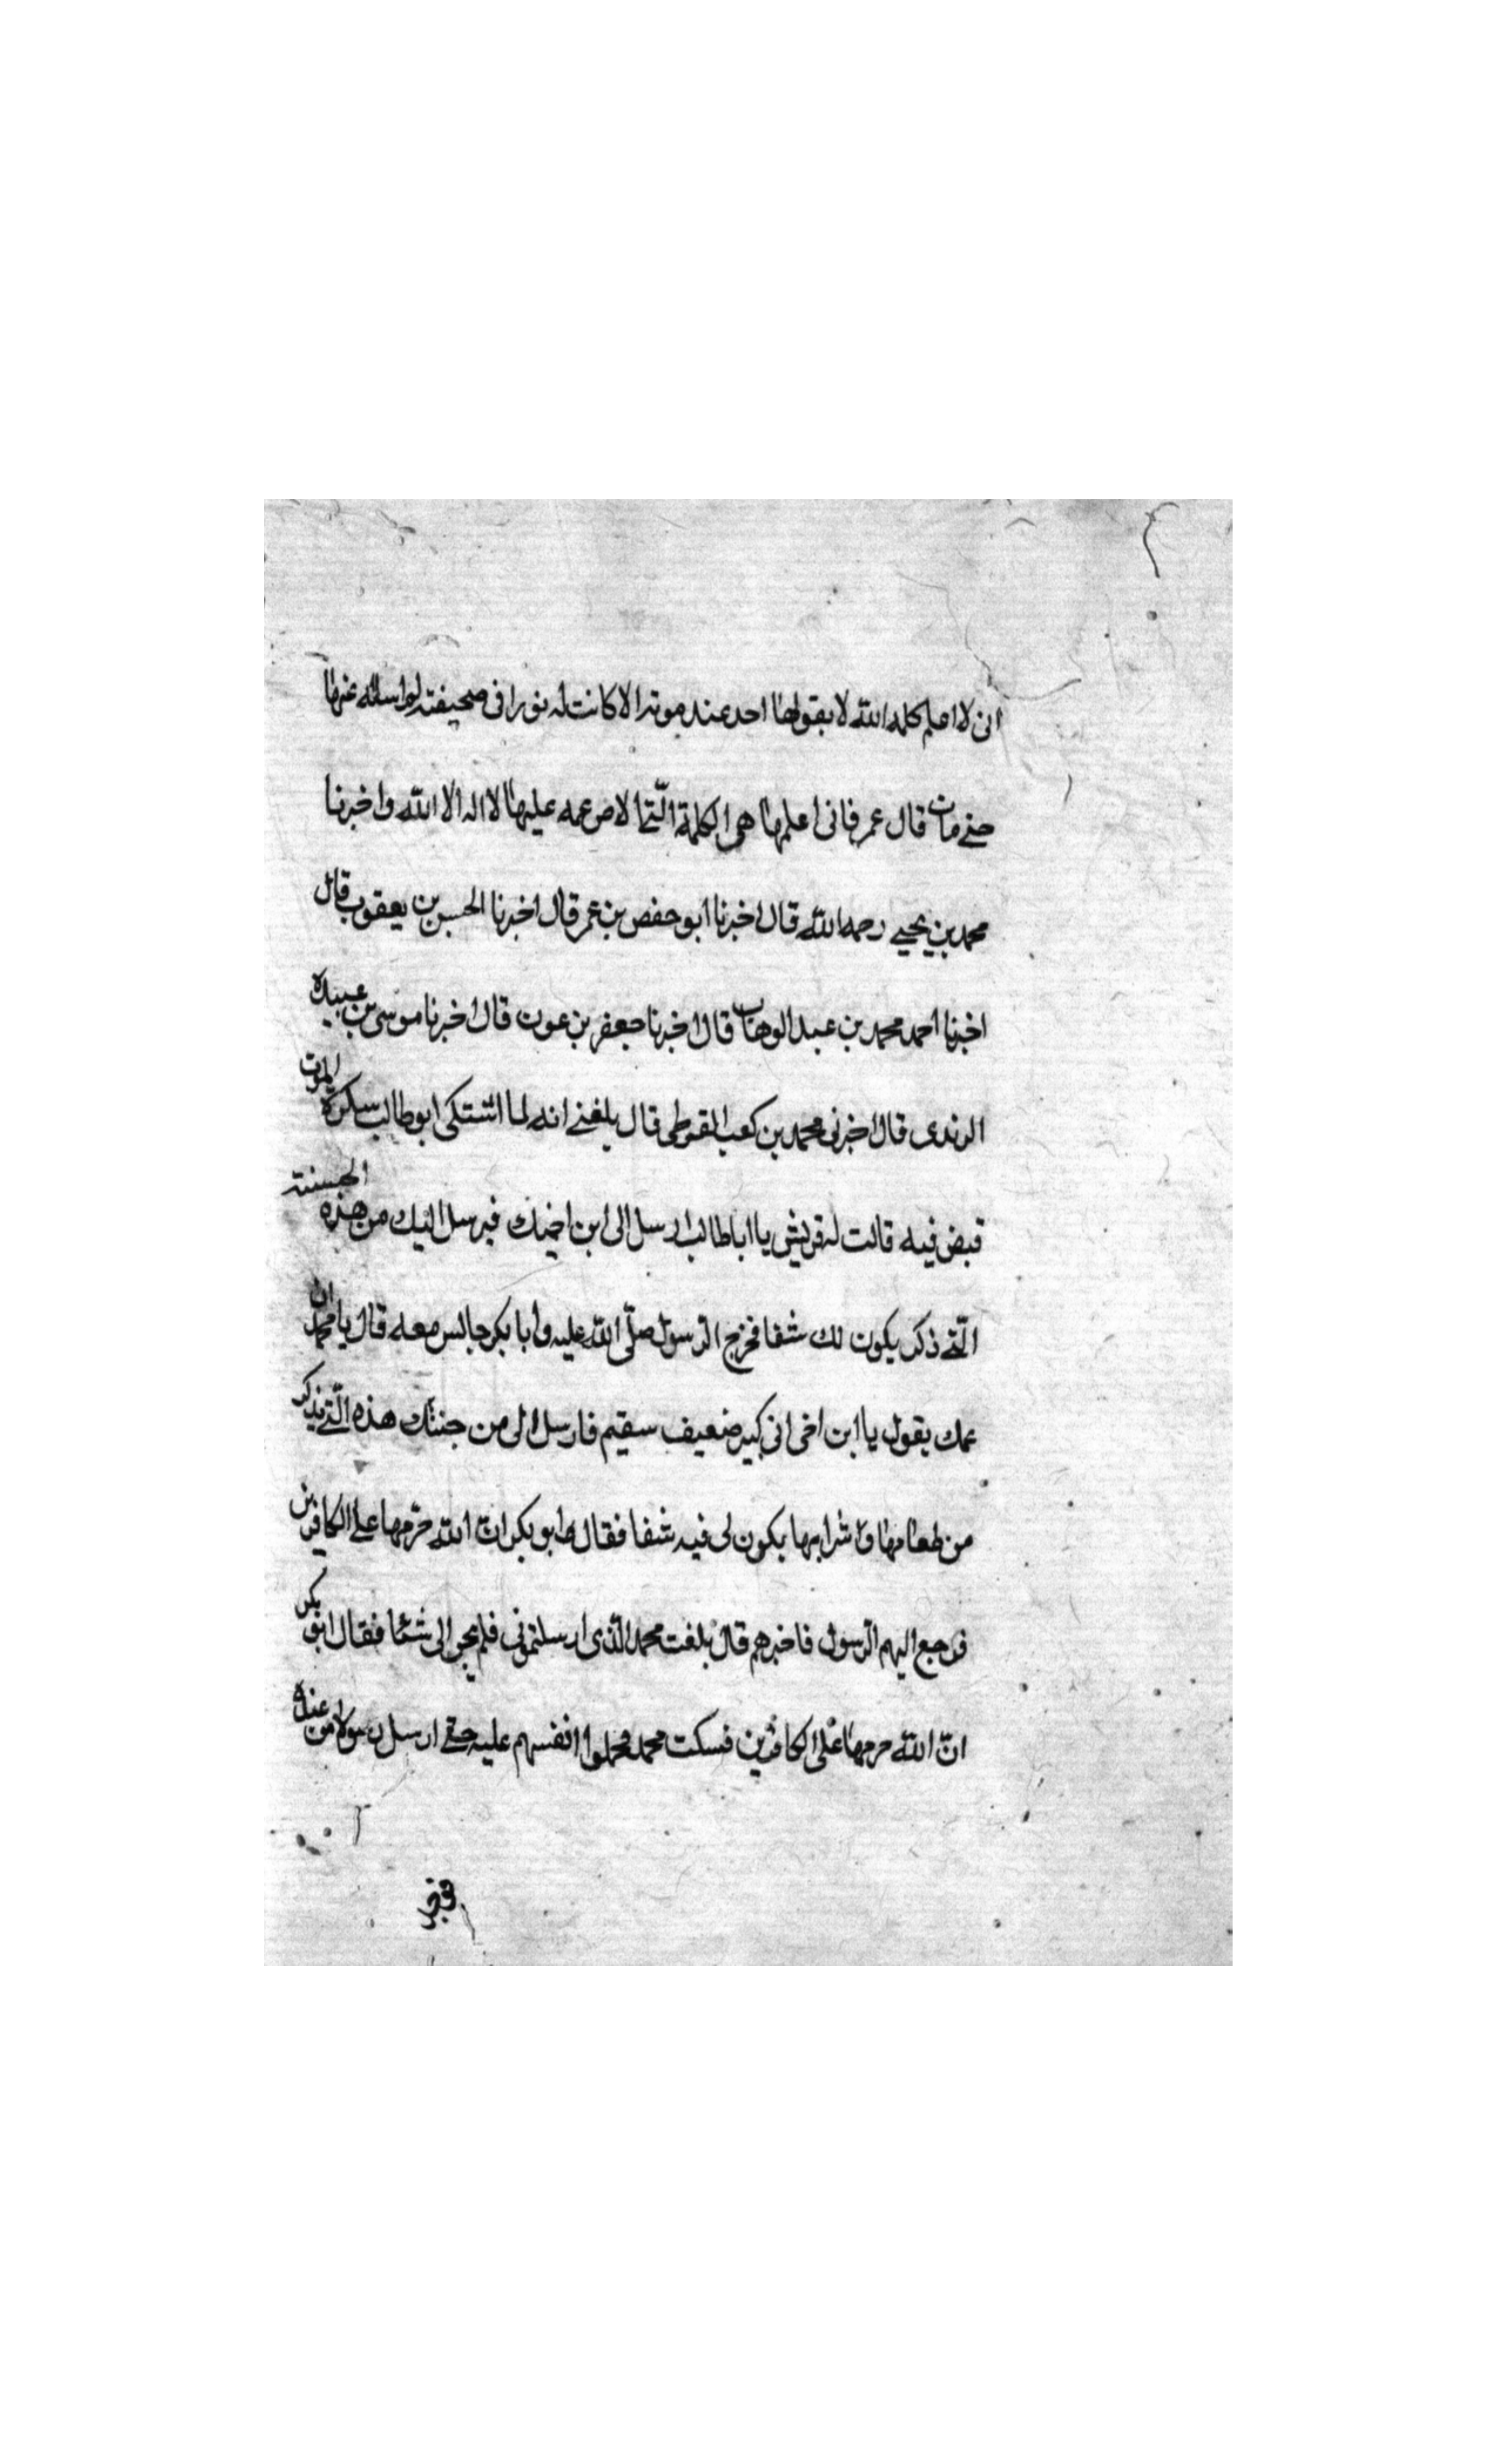 انى لا اعلم كلمه الله لا يقولها احد عند موته الا كانت له نورا فى صحيفته لم اسئله عنها
حتى مات قال عمر فانى اعلمها هى الكلمة الّتى الاص عمه عليها لا اله الا الله واخبرنا
محمد بن يحيى رحمه الله قال اخبرنا ابو حفص بن عمر قال اخبرنا الحسن بن يعقوب قال
اخبرنا احمد محمد بن عبد الوهاب قال اخبرنا جعفر بن عون قال اخبرنا موسى بن عبيدة
الرندى قال اخبرنى محمد بن كعب القوطى قال بلغنى انه لما اشتكى ابو طالب سكرة الموت
قبض فيه قالت له قريش يا ابا طالب ارسل الى ابن اخيك فيرسل اليك من هذه الجسنته
الّتى ذكر يكون لك شفا فخرج الرسول صلّى الله عليه وابا بكر جالس معه قال يا محمد ان
عمك يقول يا ابن اخى انى كبير ضعيف سقيم فارسل الى من جنتك هذه الّتى يذكر
من طعامها وشرابها يكون لى فيه شفا فقال ابو بكر انّ الله حرّمها على الكافرين
فرجع اليهم الرسول فاخبرهم قال بلغت محمد الّذى ارسلتمونى فلم يجر الى شئا فقال ابو بكر
انّ الله حرمها على الكافرين فسكت محمد فحملوا انفسهم عليه حتى ارسل رسولا من عنده
فخر